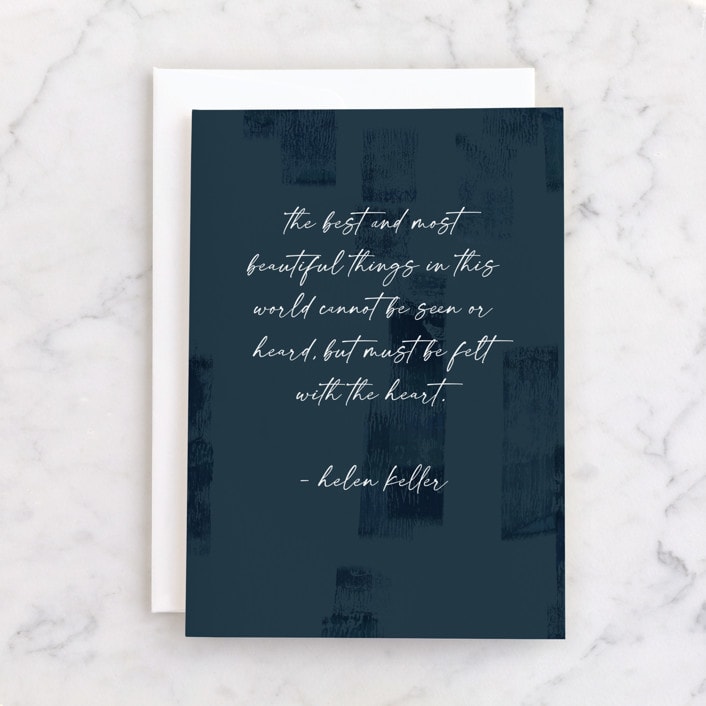 the best and most
beautiful things in this
world cannot be seen or
heard, but must be felt
with the heart.
- helen keller